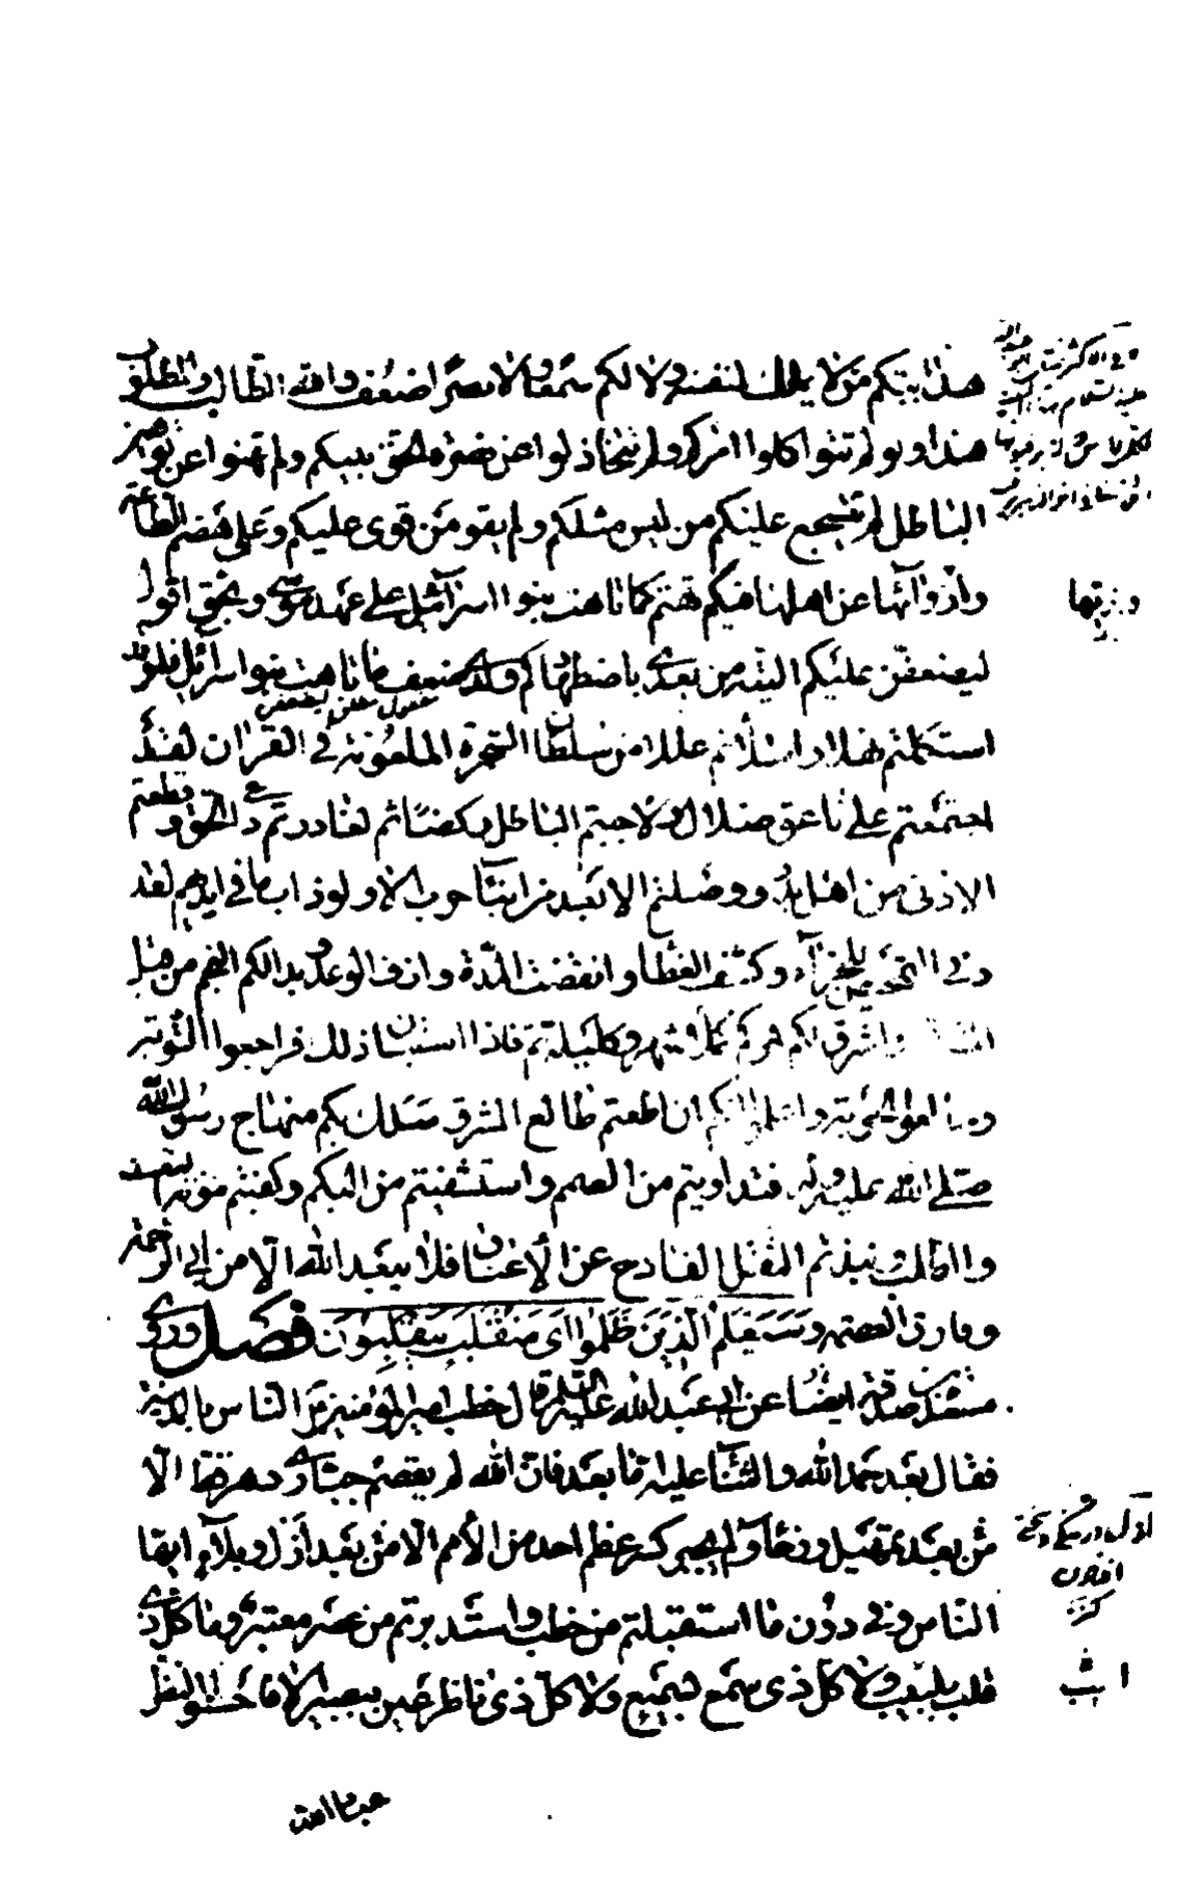 هذا بينكم من لا يملك لنفسه ولا لكم سمعا ولا بصرا ضعف والله الطالب والمطلوب
هذا ولو لم تتواكلوا امركم ولم تتخاذلوا عن نصرة الحق بينكم ولم تهنوا عن توهين
الباطل لم يتشجع عليكم من ليس مثلكم ولم يقو من قوى عليكم وعلى هضم الطاعة
وازوائها عن اهلها فيكم تهتم كما تاهت بنوا اسرائيل على عهد موسى وبحق اقول
ليضعفن عليكم التيه من بعدى باضطهادكم ولدى ضعف ما تاهت بنوا اسرائيل فلو قد
استكملتم نهلا وامتلأتم عللا من سلطان الشجرة الملعونة في القران لقد
اجتمعتم على ناعق ضلال ولاجبتم الباطل ركضا ثم لغادرتم داعى الحق وقطعتم
الادنى من اهل بدر ووصلتم الابعد من ابناء حرب الا ولو ذاب ما في ايديهم لقد
دنى التمحيص للجزاء وكشف الغطا وانقضت المدة وازف الوعد وبدا لكم النجم من قبل
المشرق واشرق لكم قمركم كملا شهره وكليلة تم فاذا استبان ذلك فراجعوا التوبة
وخالعوا الحوبة واعلموا انكم ان اطعتم طالع المشرق سلك بكم منهاج رسول الله
صلى الله عليه وآله فتداويتم من الصمم واستشفيتم من البكم وكفيتم مؤنة التعسف
والطلب ونبذتم الثقل الفادح عن الأعناق فلا يبعد الله الا من ابى الرحمة
وفارق العصمة وسيعلم الذين ظلموا اى منقلب ينقلبون فصل وروى
مسعدة بن صدقة ايضا عن ابى عبد الله عليه السلم قال خطب امير المؤمنين الناس بالمدينة
فقال بعد حمد الله والثناء عليه اما بعد فان الله لم يقصم جبارى دهر قط الا
من بعد تمهيل ورخاء ولم يجبر كسر عظم احد من الأمم الا من بعد ازل وبلاء ايها
الناس وفي دون ما استقبلتم من خطب واستدبرتم من عصر معتبر وما كل ذى
قلب بلبيب ولا كل ذى سمع بسميع ولا كل ذى ناظر عين ببصير الا فاحسنوا النظر
عباد الله